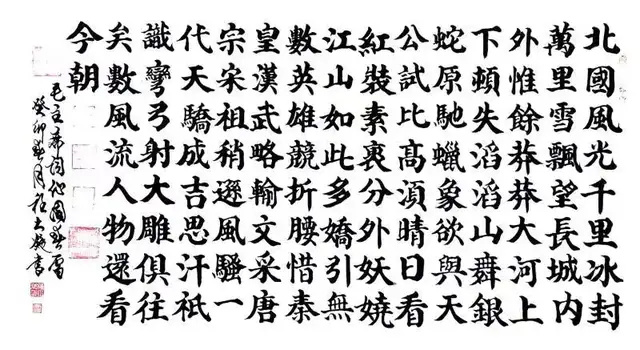 北國風光千里冰封
萬里雪飄望長城内
外惟餘莽莽大河上
下頓失滔滔山舞銀
蛇原馳蠟象欲與天
公試比高須晴日看
紅裝素裹分外妖嬈
江山如此多嬌引無
數英雄競折腰惜秦
皇漢武略輸文采唐
宗宋祖稍遜風騷一
代天驕成吉思汗祇
識彎弓射大雕俱往
矣數風流人物還看
今朝
毛主席词沁園春雪
癸卯春月 書